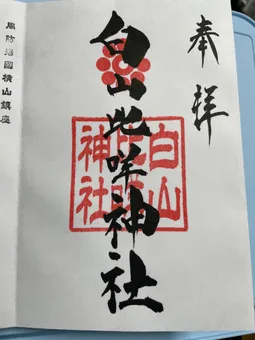 奉拝
白山比咩神社
白山比咩神社
周防岩國横山鎮座